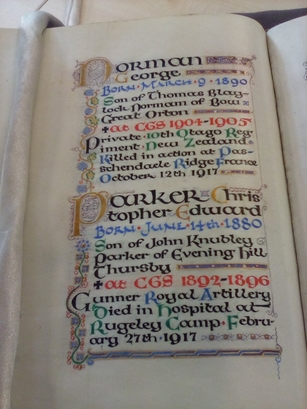 Dorman
George
Born · March · 9 · 1890
Son of Thomas Blay-
lock Dormam of Bow
Great Orton
+at CGS 1904-1905
Private · 10th Otago Reg-
iment · New Zealand ·
Killed in action at Pas-
schendaele Ridge France
October 12th 1917
Parker · Chris
topher · Edward
Born · June · 14th · 1880
Son of John Knubley
Parker of Evening hill
Thursby
+at CGS 1892-1896
Gunner Royal Artillery
Died in Hospital at
Rugeley Camp · Febru-
ary 27th · 1917